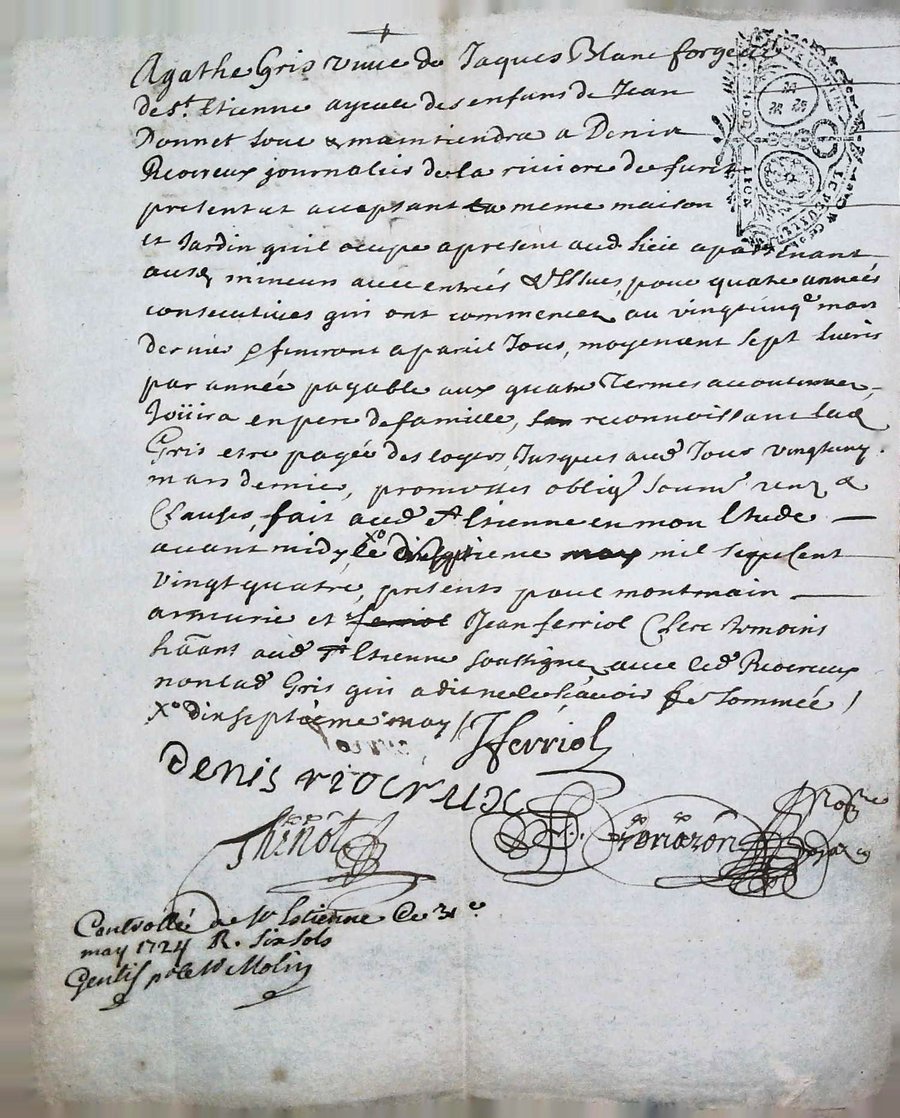 Agathe Gris vuive de Jaques Blanc forgeur
de St. Etienne ayeule des enfans de Jean
Donnet loue & maintiendra a Denis
Riocreux journalier de la riviere de furet
present et acceptant la meme maison
et Jardin qu'il occupe apresent aud. lieu apartenant
ausd mineurs avec entrés & Issues, pour quatre années
consecutives qui ont commencer au vingtcinqe mars
dernier & finiront a pareil Jour, moyenent sept livres
par année payable aux quatre Termes accoutumer,
Joüira en pere de famille, reconnoissant lad
Gris etre payée des loyers Jusques aud Jour vingtcinq
mars dernier, promettes obligs soums renz &
Clauses, fait aud St Etienne en mon Etude
avant midy, le Xo dixseptieme may mil sept cent
vingt quatre, presents paul montmain
armurie et ferriol Jean ferriol Clerc temoins
hãants aud St Etienne soussignez avec led Riocreux
non lad Gris qui a dit ne le sçavoir de ce sommée /
Xo dixseptieme may /
JFerriol
Denis riocrux
Thenot
Controllé a St Estienne le 31e
may 1724 R. six sols
Gentil pr le Sr Molin
GEN. DE LION